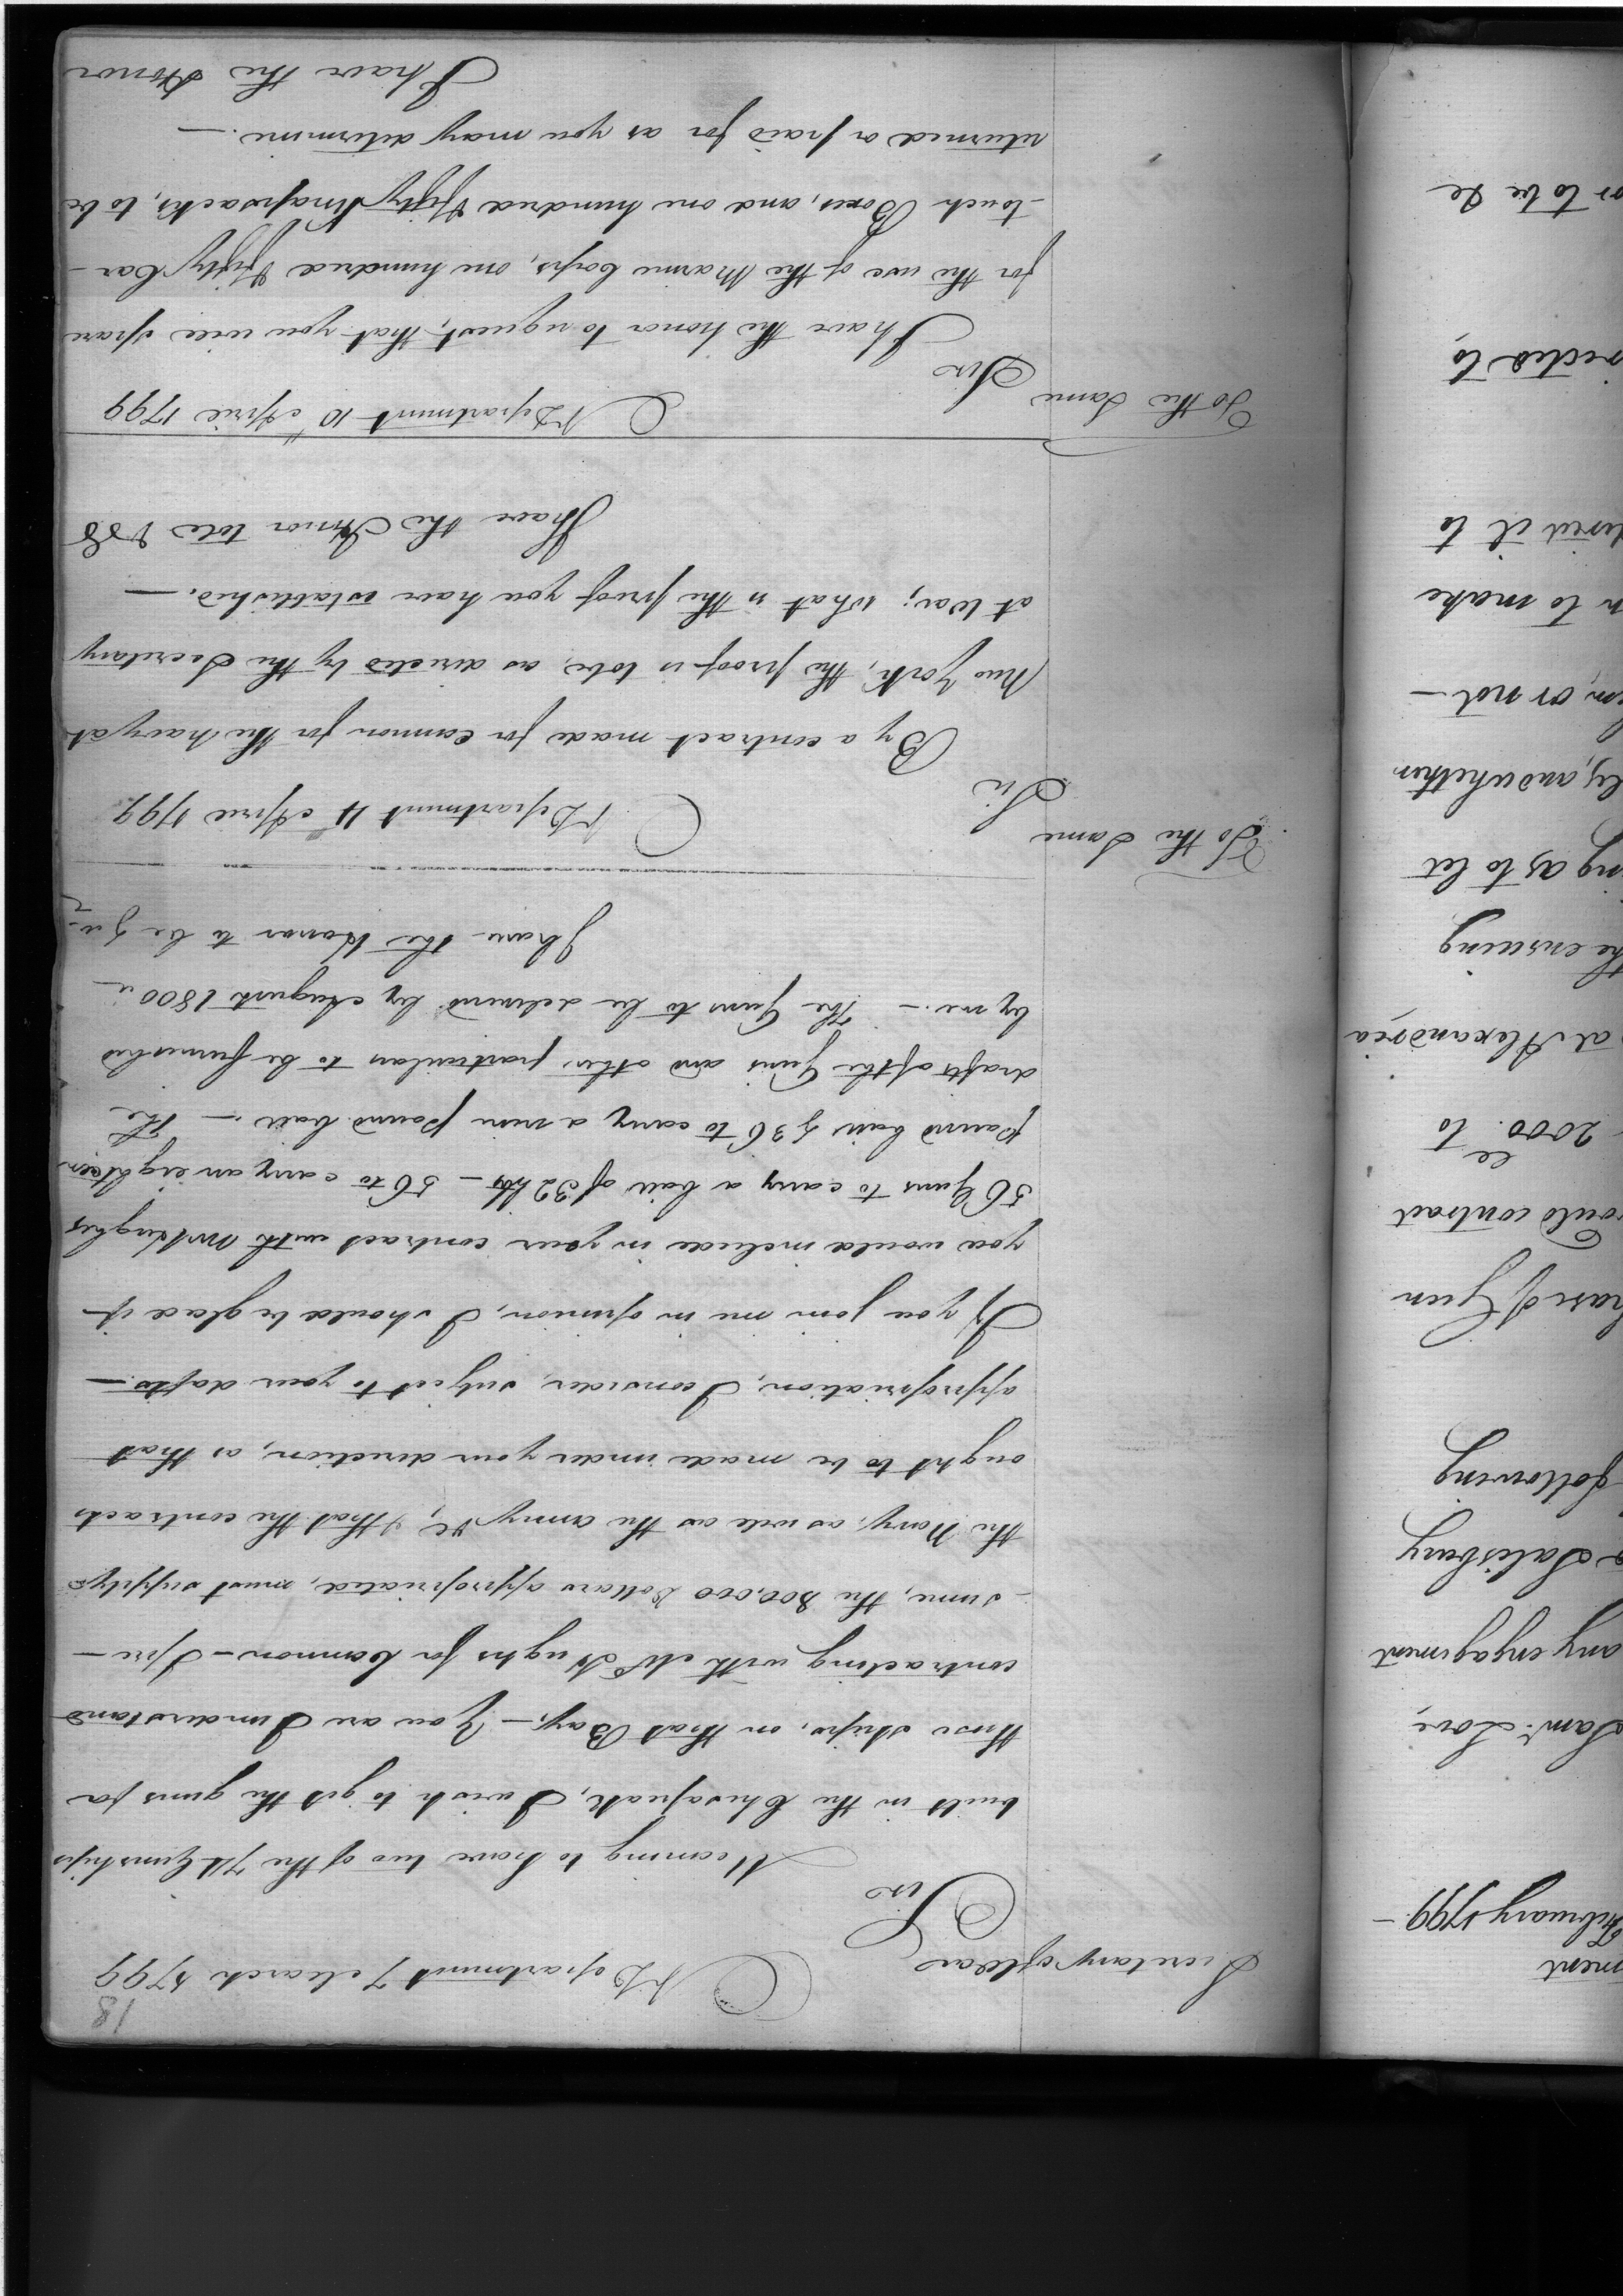 18
N Department 7 March 1799
Secretary of War
Sir
Meaning to have two of the 74 Gunships
built in the Chesapeak, I wish to get the guns for
those ships, on that Bay. — You are I understand
contracting with Mr Hughs for Cannon — I pre-
-sume, the 800,000 Dollars appropriated, must supply
the Navy, as well as the army &c, & that the contracts
ought to be made under your direction, as that
appropriation, I consider, subject to your dafts. —
If you join me in opinion, I should be glad if
you would include in your contract with Mr Hughes
56 Guns to carry a ball of 32 lbs — 56 to carry an eighteen
pound ball & 36 to carry a nine pound ball — The
drafts of the Guns and other particulars to be furnished
by me. — The Guns to be deliverd by August 1800 —
I have the Honor to be &c
To the Same
N Department 4 April 1799
Sir
By a contract made for Cannon for the Navy at
New York, the proof is to be, as directed by the Secretary
at War; what is the proof you have established. —
I have the Honor to be &c
To the Same
N Department 10th April 1799
Sir
I have the honor to request, that you will spare
for the use of the Marine Corps, one hundred & fifty Car-
-touch Boxes, and one hundred & fifty Knapsacks, to be
returned or paid for as you may determine. —
I have the Honor
ment
February 1799 —
Saml. Love,
any engagement
Salisbury
following
hase of Gun
ould contract
2000. to
at Alexandria
he ensuing
ng as to let
ly, and whether
em, or not —
n to make
sired it to
rected to,
or to be de